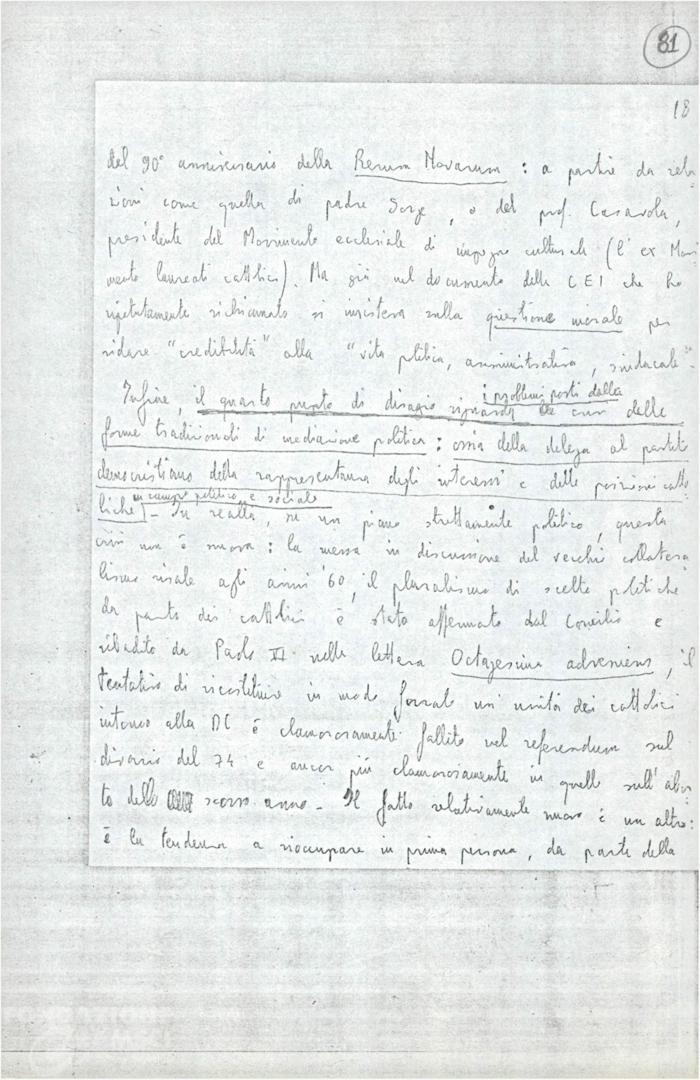 81
18
del 90° anniversario della Rerum Novarum : a partire da rela
zioni come quella di padre Sorge, o del prof. Casavola,
presidente del Movimento ecclesiale di impegno culturale (l'ex Movi
mento laureati cattolici). Ma già nel documento della CEI che ho
ripetutamente richiamato si insisteva sulla questione morale per
ridare "credibilità" alla "vita politica, amministrativa, sindacale".
i problemi posti dalla
Infine, il quarto punto di disagio riguarda crisi delle
forme tradizionali di mediazione politica : ossia della delega al partito
democristiano della rappresentanza degli interessi e delle posizioni catto
in campo politico e sociale
liche - In realtà, su un piano strettamente politico, questa
crisi non è nuova : la messa in discussione del vecchio collatera
lismo risale agli anni '60, il pluralismo di scelte politiche
da parte dei cattolici è stato affermato dal Concilio e
ribadito da Paolo VI nella lettera Octagesima adveniens, il
tentativo di ricostituire in modo forzato un'unità dei cattolici
intorno alla DC è clamorosamente fallito nel referendum sul
divorzio del 74 e ancor più clamorosamente in quello sull'abor
to dello scorso anno - Il fatto relativamente nuovo è un altro:
è la tendenza a rioccupare in prima persona, da parte della